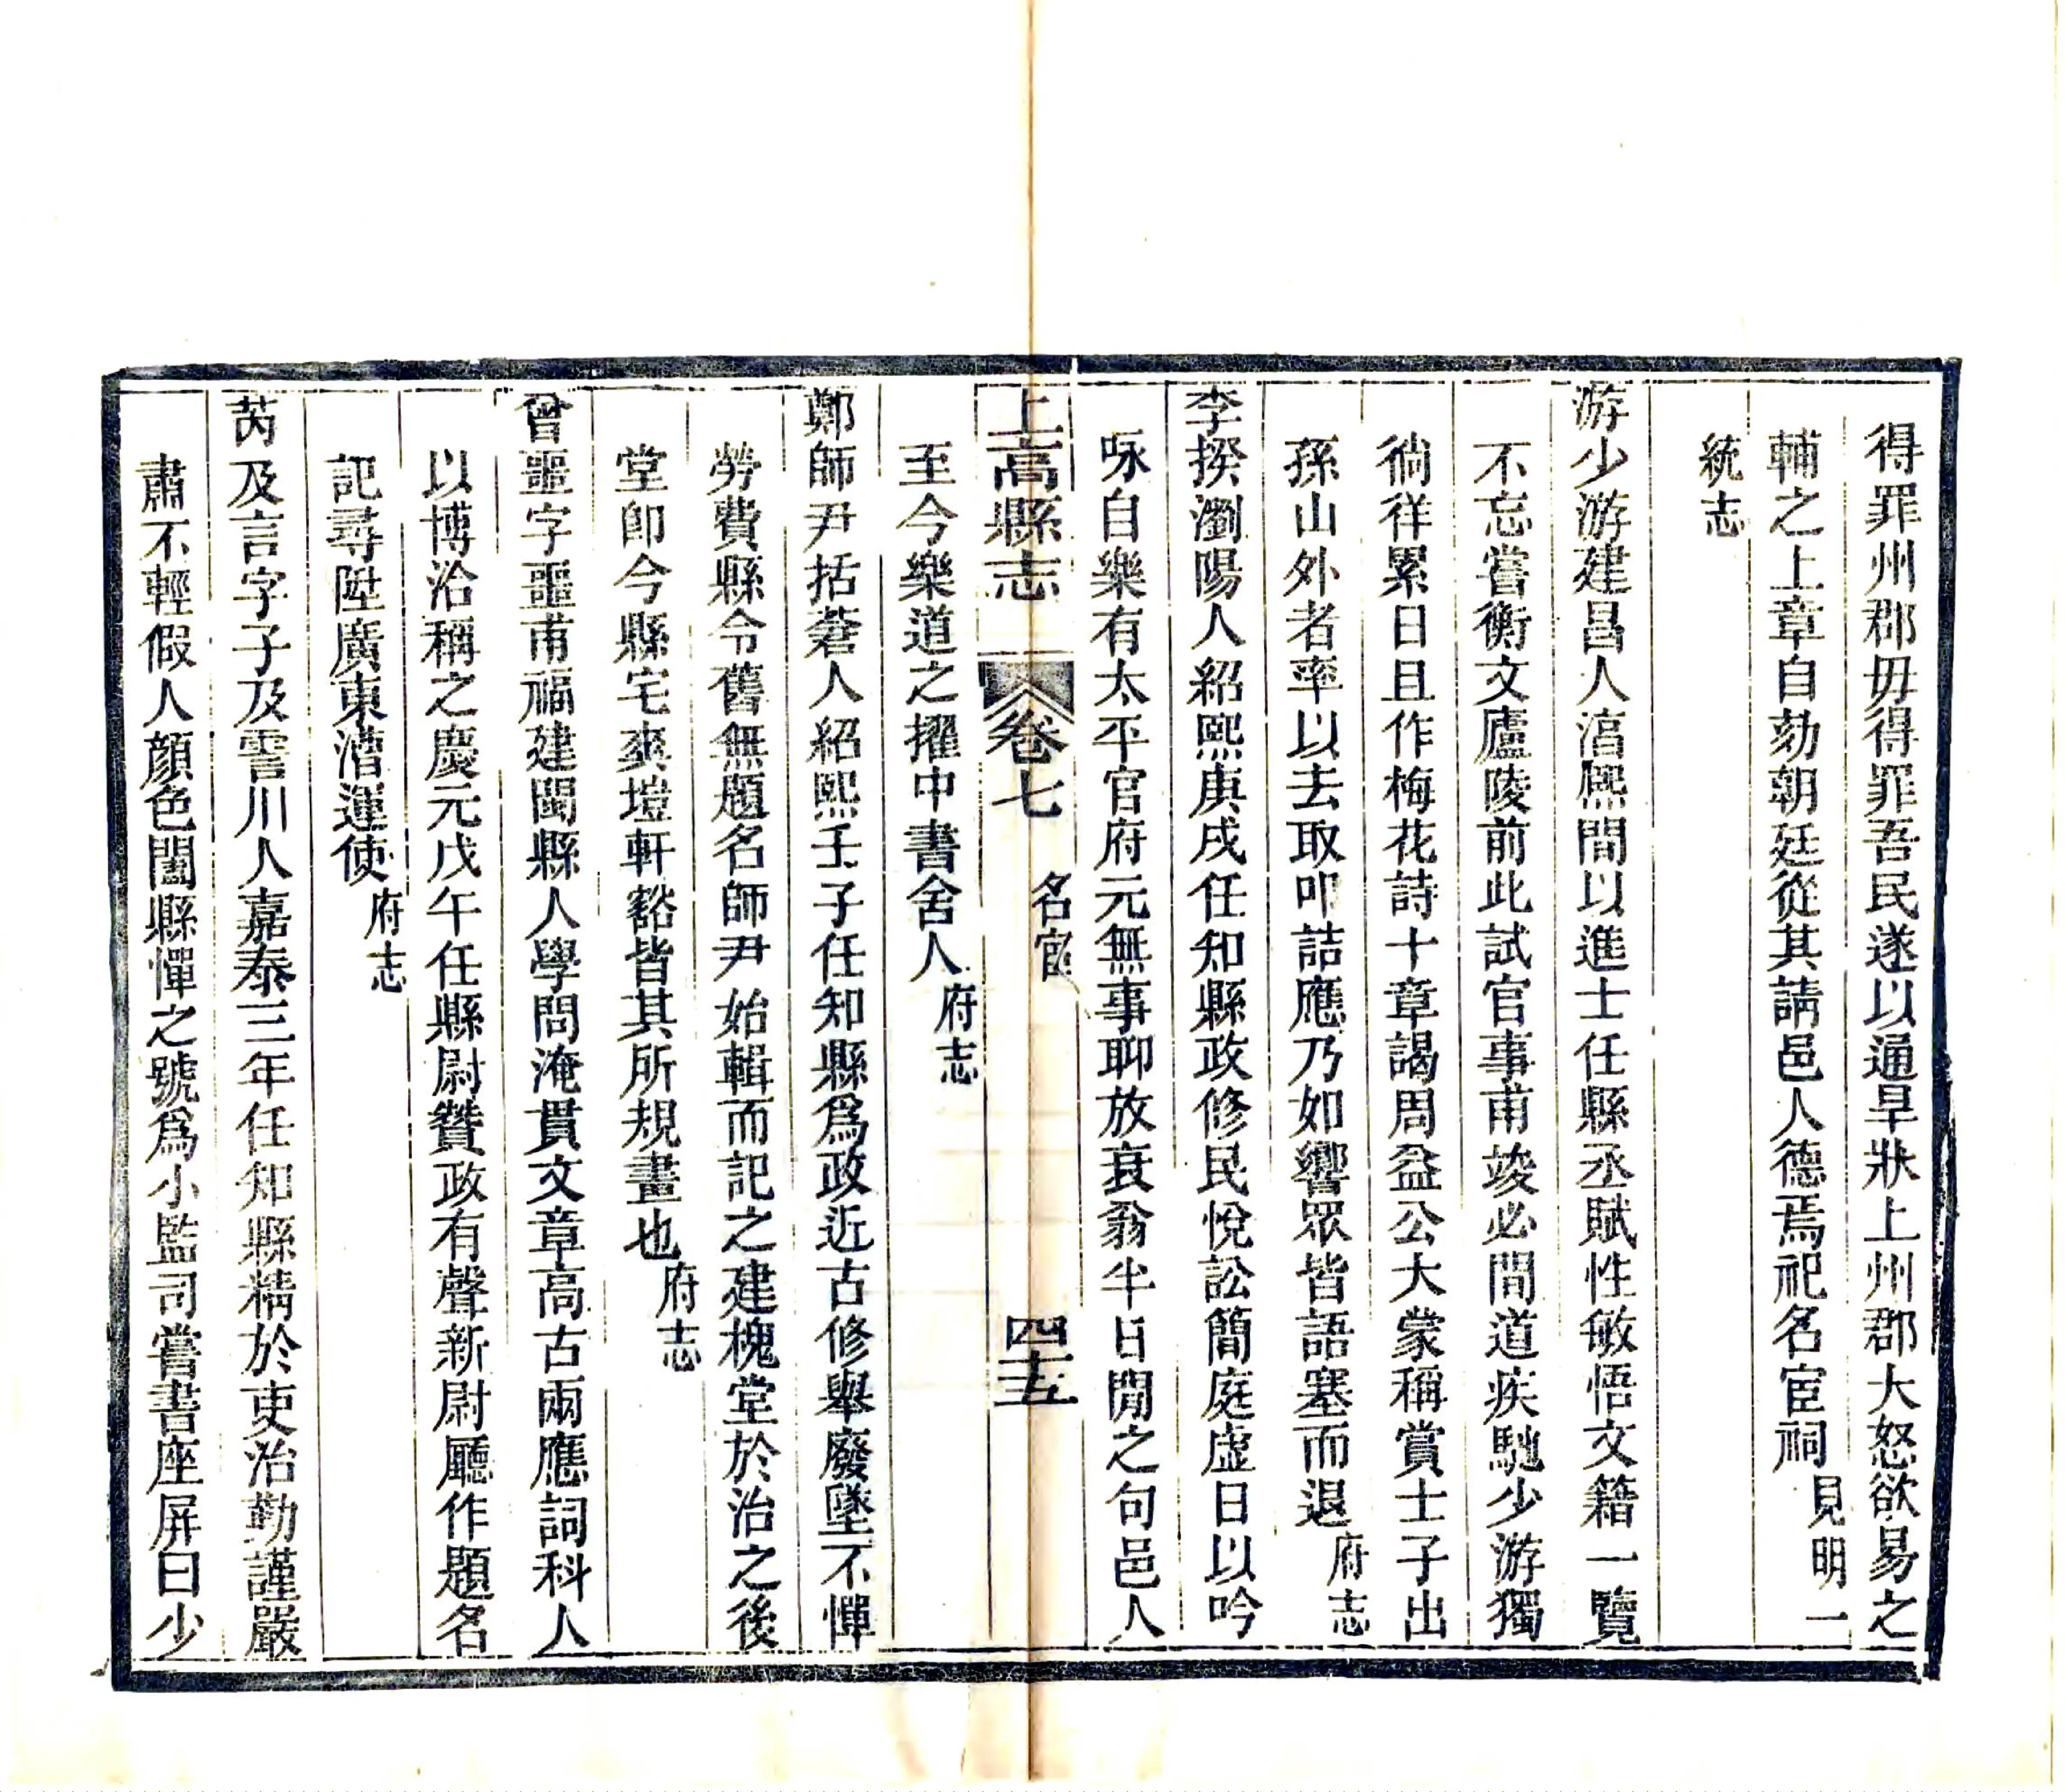 得罪州郡毋得罪吾民遂以通旱狀上州郡大怒欲易之
輔之上章自劾朝廷從其請邑人德焉祀名宦祠見明一
統志
游少游建昌人淳熙間以進士任縣丞賦性敏悟文籍一覽
不忘嘗衡文廬陵前此試官事甫竣必間道疾馳少游獨
徜徉累日且作梅花詩十章謁周益公大蒙稱賞士子出
孫山外者率以去取叩詰應乃如響眾皆語塞而退府志
李揆瀏陽人紹熙庚戌任知縣政修民悅訟簡庭虛日以吟
咏自樂有太平官府元無事聊放衰翁半日閒之句邑人
上高縣志 卷七 名宦 四十五
至今樂道之擢中書舍人府志
鄭師尹括蒼人紹熙壬子任知縣為政近古修舉廢墜不憚
勞費縣令舊無題名師尹始輯而記之建槐堂於治之後
堂卽今縣宅爽塏軒豁皆其所規畫也府志
曾噩字噩甫福建閩縣人學問淹貫文章高古兩應詞科人
以博洽稱之慶元戊午任縣尉贊政有聲新尉廳作題名
記尋陞廣東漕運使府志
芮及言字子及霅川人嘉泰三年任知縣精於吏治勤謹嚴
肅不輕假人顏色闔縣憚之號爲小監司嘗書座屏曰少